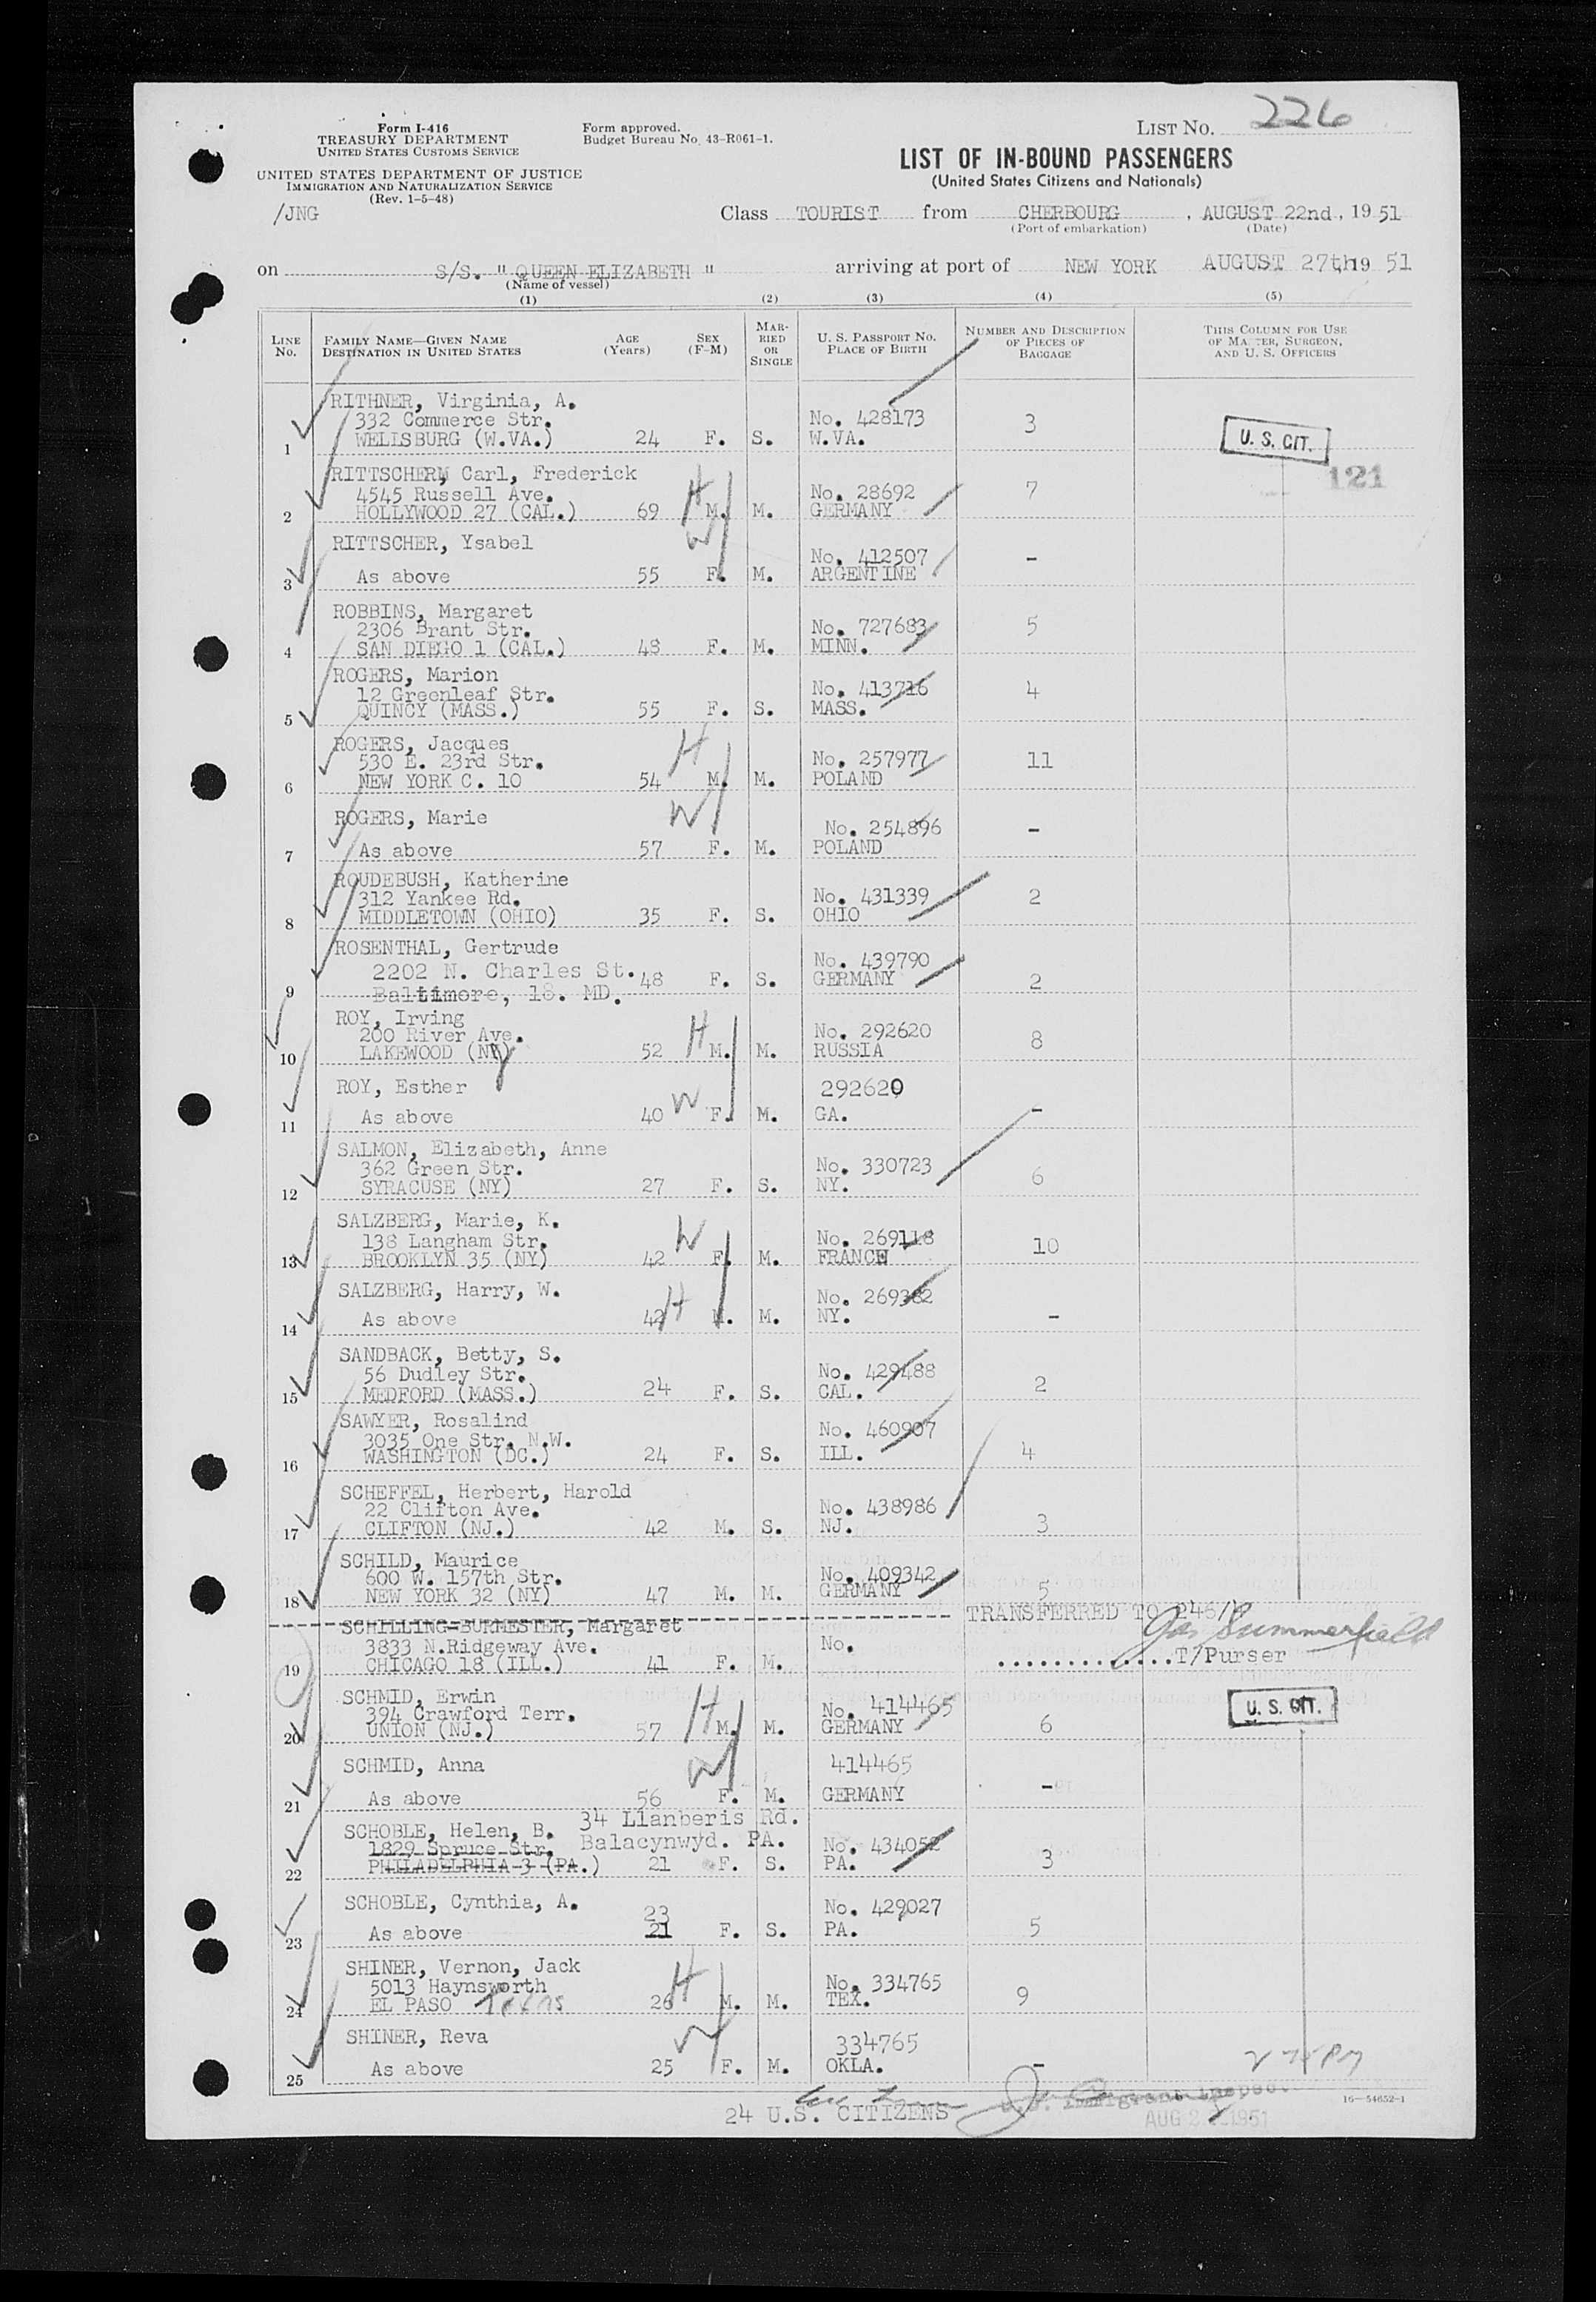 Form I-416
TREASURY DEPARTMENT
UNITED STATES CUSTOMS SERVICE
UNITED STATES DEPARTMENT OF JUSTICE
IMMIGRATION AND NATURALIZATION SERVICE
(Rev. 1-5-48)
/JNG
Form approved.
Budget Bureau No. 43-R061-1.
LIST NO. 226
LIST OF IN-BOUND PASSENGERS
(United States Citizens and Nationals)
Class TOURIST from CHERBOURG, AUGUST 22nd, 1951
(Port of embarkation) (Date)
on S/S. "QUEEN ELIZABETH" arriving at port of NEW YORK AUGUST 27th 19 51
(Name of vessel)
(1) (2) (3) (4) (5)
LINE No. FAMILY NAME—GIVEN NAME DESTINATION IN UNITED STATES AGE (Years) SEX (F-M) MARRIED OR SINGLE U. S. PASSPORT NO. PLACE OF BIRTH NUMBER AND DESCRIPTION OF PIECES OF BAGGAGE THIS COLUMN FOR USE OF MASTER, SURGEON, AND U. S. OFFICERS
RITHNER, Virginia, A.
332 Commerce Str. No. 428173 3
1 WELLSBURG (W.VA.) 24 F. S. W.VA. U. S. CIT.
RITTSCHER, Carl, Frederick H 121
4545 Russell Ave. No. 28692 7
2 HOLLYWOOD 27 (CAL.) 69 M. M. GERMANY
RITTSCHER, Ysabel W No. 412507 -
3 As above 55 F. M. ARGENTINE
ROBBINS, Margaret
2306 Brant Str. No. 727683 5
4 SAN DIEGO 1 (CAL.) 48 F. M. MINN.
ROGERS, Marion
12 Greenleaf Str. No. 413716 4
5 QUINCY (MASS.) 55 F. S. MASS.
ROGERS, Jacques H
530 E. 23rd Str. No. 257977 11
6 NEW YORK C. 10 54 M. M. POLAND
ROGERS, Marie W No. 254896 -
7 As above 57 F. M. POLAND
ROUDEBUSH, Katherine
312 Yankee Rd. No. 431339 2
8 MIDDLETOWN (OHIO) 35 F. S. OHIO
ROSENTHAL, Gertrude No. 439790
2202 N. Charles St. 48 F. S. GERMANY 2
9 Baltimore, 18. MD.
ROY, Irving H
200 River Ave. No. 292620 8
10 LAKEWOOD (NJ) 52 M. M. RUSSIA
ROY, Esther W 292620 -
11 As above 40 F. M. GA.
SALMON, Elizabeth, Anne
362 Green Str. No. 330723 6
12 SYRACUSE (NY) 27 F. S. NY.
SALZBERG, Marie, K. W
138 Langham Str. No. 269118 10
13 BROOKLYN 35 (NY) 42 F. M. FRANCE
SALZBERG, Harry, W. H No. 269382
14 As above 42 M. M. NY. -
SANDBACK, Betty, S.
56 Dudley Str. No. 429488 2
15 MEDFORD (MASS.) 24 F. S. CAL.
SAWYER, Rosalind
3035 One Str. N.W. No. 460907 4
16 WASHINGTON (DC.) 24 F. S. ILL.
SCHEFFEL, Herbert, Harold
22 Clifton Ave. No. 438986 3
17 CLIFTON (NJ.) 42 M. S. NJ.
SCHILD, Maurice
600 W. 157th Str. No. 409342 5
18 NEW YORK 32 (NY) 47 M. M. GERMANY
SCHILLING-BURMESTER, Margaret TRANSFERRED TO 246/
3833 N.Ridgeway Ave. No. Summerfield
19 CHICAGO 18 (ILL.) 41 F. M. T/Purser
SCHMID, Erwin H
394 Crawford Terr. No. 414465 6 U. S. CIT.
20 UNION (NJ.) 57 M. M. GERMANY
SCHMID, Anna W 414465 -
21 As above 56 F. M. GERMANY
34 Llanberis Rd.
SCHOBLE, Helen, B. Balacynwyd. PA.
1829 Spruce Str. No. 434052 3
22 PHILADELPHIA 3 (PA.) 21 F. S. PA.
SCHOBLE, Cynthia, A. 23 No. 429027 5
23 As above 21 F. S. PA.
SHINER, Vernon, Jack H
5013 Haynsworth No. 334765 9
24 EL PASO Texas 26 M. M. TEX.
SHINER, Reva W 334765 -
25 As above 25 F. M. OKLA.
24 U.S. CITIZENS
Immigrant Inspec.
AUG 1951
16-54652-1